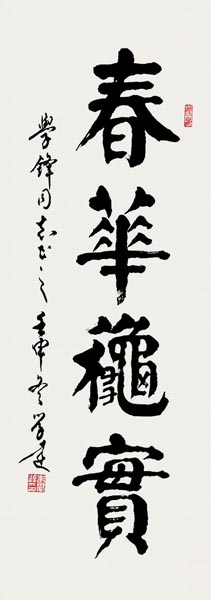 春華龝實
學鋒同志正之壬申冬